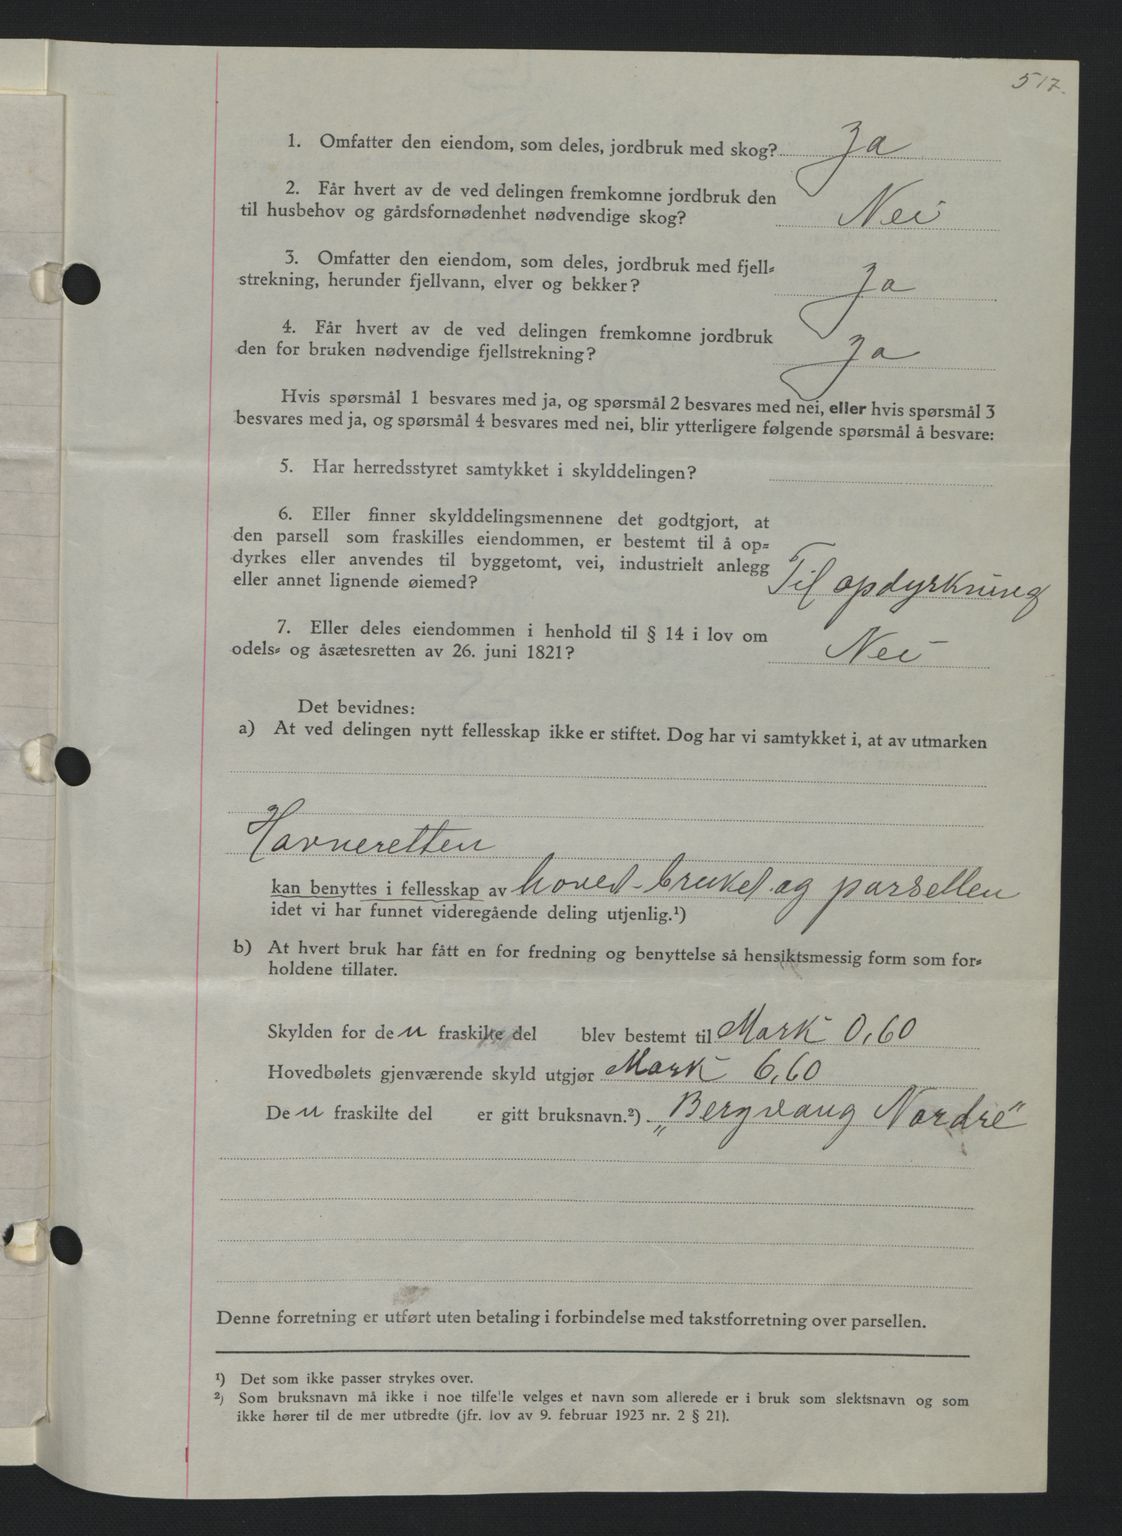 517.
1. Omfatter den eiendom, som deles, jordbruk med skog? Ja
2. Får hvert av de ved delingen fremkomne jordbruk den
til husbehov og gårdsfornødenhet nødvendige skog? Nei
3. Omfatter den eiendom, som deles, jordbruk med fjell-
strekning, herunder fjellvann, elver og bekker? Ja
4. Får hvert av de ved delingen fremkomne jordbruk
den for bruken nødvendige fjellstrekning? Ja
Hvis spørsmål 1 besvares med ja, og spørsmål 2 besvares med nei, eller hvis spørsmål 3
besvares med ja, og spørsmål 4 besvares med nei, blir ytterligere følgende spørsmål å besvare:
5. Har herredsstyret samtykket i skylddelingen?
6. Eller finner skylddelingsmennene det godtgjort, at
den parsell som fraskilles eiendommen, er bestemt til å op-
dyrkes eller anvendes til byggetomt, vei, industrielt anlegg
eller annet lignende øiemed? Til opdyrkning
7. Eller deles eiendommen i henhold til § 14 i lov om
odels- og åsætesretten av 26. juni 1821? Nei
Det bevidnes:
a) At ved delingen nytt fellesskap ikke er stiftet. Dog har vi samtykket i, at av utmarken
Havneretten
kan benyttes i fellesskap av hoved-bruket og parsellen
idet vi har funnet videregående deling utjenlig.¹)
b) At hvert bruk har fått en for fredning og benyttelse så hensiktsmessig form som for-
holdene tillater.
Skylden for den fraskilte del blev bestemt til Mark 0,60
Hovedbølets gjenværende skyld utgjør Mark 6,60
Den fraskilte del er gitt bruksnavn.²) „Bergvang Nordre"
Denne forretning er utført uten betaling i forbindelse med takstforretning over parsellen.
¹) Det som ikke passer strykes over.
²) Som bruksnavn må ikke i noe tilfelle velges et navn som allerede er i bruk som slektsnavn og som
ikke hører til de mer utbredte (jfr. lov av 9. februar 1923 nr. 2 § 21).